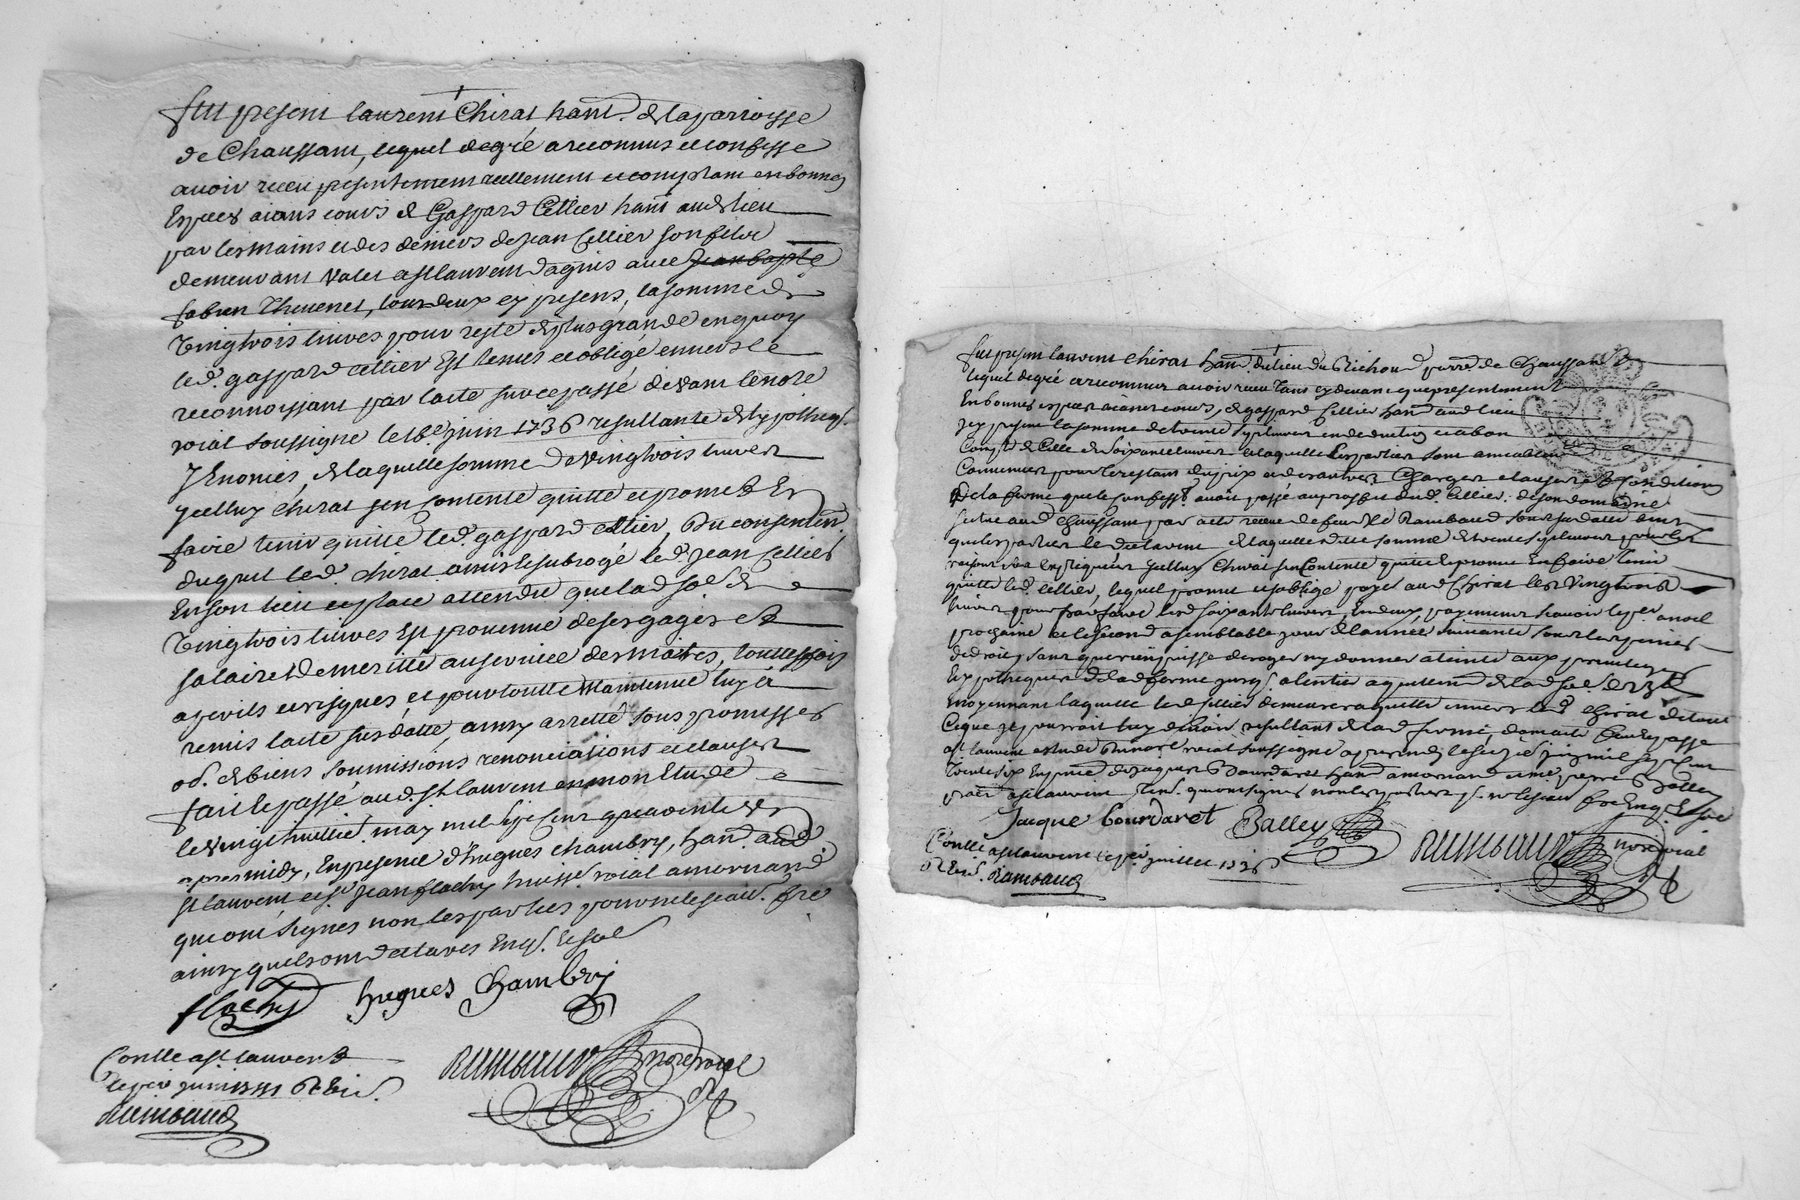 fut present laurent Chirat hant. de la parroisse
de Chaussant, lequel de gré a reconnus et confesse
avoir receu presentement reellement et comptant en bonnes
Especes aians cours de Gaspard Cellier hant aud. lieu
par les mains et des deniers de jean Cellier son filz
demeurant valet a st laurent dagnis avec jean bapte
fabien Thevenet, tous deux cy presens, la somme de
vingtrois livres pour reste de plus grande en quoy
led. gaspard cellier Est tenus et obligé envers le
reconnoissant par lacte sur ce passé devant le nore
roial soussigne le 18e juin 1736 resultante de lhypotheq.
y Enoncés, de laquelle somme de vingtrois livres
jcelluy chirat sen contente quitte et promet En
faire tenir quitte led. gaspard cellier, du consentemt.
duquel led. chirat a mis et subrogé led. jean Cellier
En son lieu et place attendu que lad. so.e de
vingtrois livres Est provenue de ses gages et
salaires de meritté au service des maitres, touttesfois
a perils et risques et pour toutte maintenue luy a
remis lacte susdatté, ainsy arretté sous promesses
ob. de biens soumissions renonciations et clauses
fait et passé aud. st laurent en mon Etude
le vingt huitie. may mil sept cent quarente
apres midy, En presence d'hugues chambry, hand. aud.
st laurent et sr jean flachy huisse. roial a mornand.
qui ont signés non les parties pour ne le scavoir. fre
ainsy quels ont declarés Enq. et so.e
flachy hugues Chambry
Contlle a st laurent
le per juin
Rambaud
Rambaud nore roial
fut present laurent chirat hand. du lieu du Richoud parre de Chaussant
lequel de gré a reconnus avoir receu tant cy devant que presentement
En bonnes especes aians cours, de gaspard Cellier hand aud lieu
jcy present la somme de trente sept livres en deduction et a bon
Compte de Celle de soixante livres a laquelle les parties sont amiablemt
Convenues pour le restant du prix et des autres Charges clauses et Conditions
De la ferme que le confesst. avoit passé au proffit dud. Cellier, de son domaine
situé aud. chaussant par acte receue de feu Me Rambaud sous sa datte
que les parties de laquelle ditte somme de trente sept livres pour les
raisons sus Expliquées jcelluy Chirat sen Contente quitte et promet En faire tenir
quitte led. cellier, lequel promet et soblige payer aud. Chirat les vingtrois
livres pour parfaire lesd. soixante livres En deux payemens scavoir le per. a noel
prochaine et le second a semblable jour de lannée suivante sous les peines
de droit, sans que rien puisse deroger ny donner ateinte aux privileges
hypotheques de lad ferme jusq. a lentier aquittemt. de lad so.e de 23 l.
Moyennant laquelle led. Cellier demeurera quitte envers led. Chirat de tout
Ceque jl pourroit luy devoir resultant de lad. ferme,
a st laurent Etude dunore roial soussigne apres midy le seizie. juin mil sept cent
trente six En presence de jaques Bourdaret hand a mornand et me pierre Balley
prati. a st laurent tem. qui ont signes non les parties p. ne le scav. fre Enq. Et so.e
Jacque bourdaret Balley
Contlle a st laurent le per juillet 1736
Rambaud
Rambaud nore roial